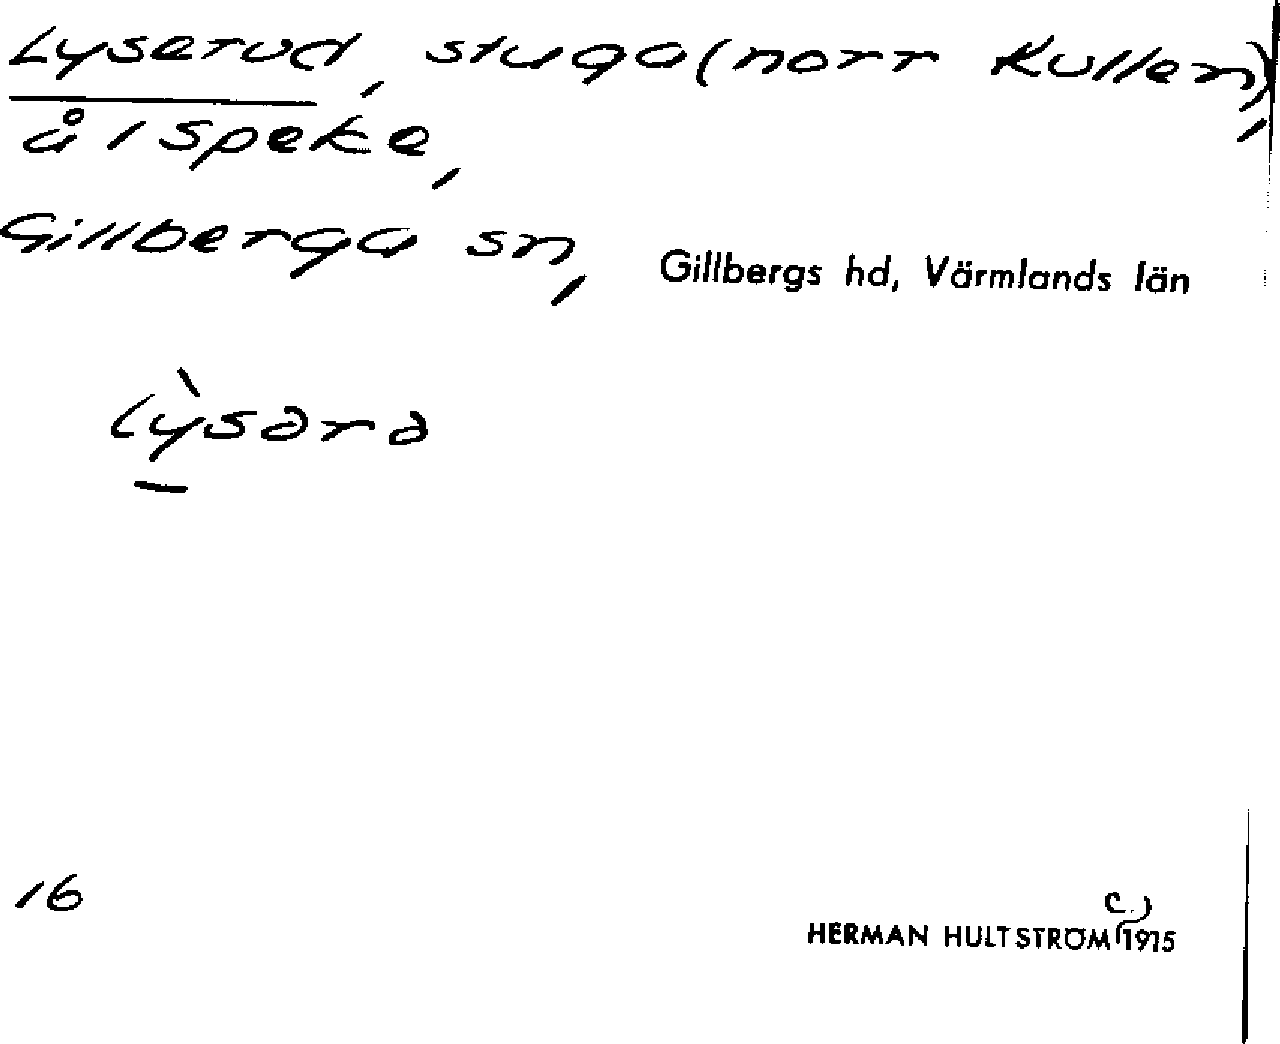 Lyserud, stuga (norr Kullen),
å 1 Speke,
Gillberga sn, Gillbergs hd, Värmlands län
lỳsərə
16
HERMAN HULTSTRÖM (c.) 1915